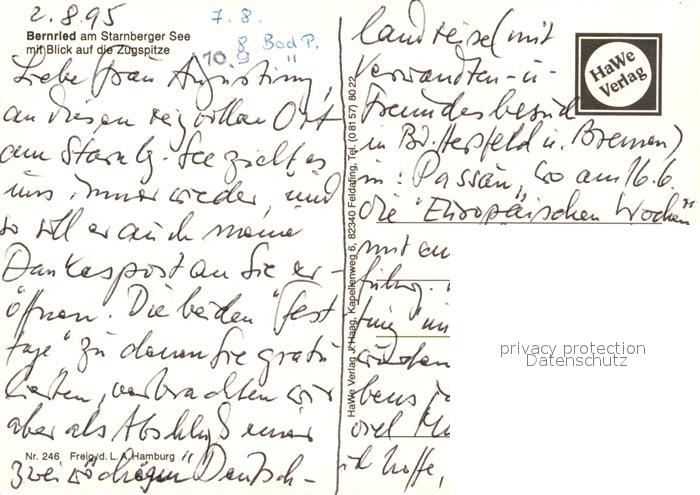 2.8.95
7. 8.
8 Bad P.
10. 9 "
Bernried am Starnberger See
mit Blick auf die Zugspitze
Liebe Frau Augustiny,
an diesen reizvollen Ort
am Starnbg. See zieht es
uns immer wieder, und
so soll er auch meine
Dankespost an Sie er-
öffnen. Die beiden "Fest-
tage" zu denen Sie gratu
lierten, verbrachten wir
aber als Abschluß einer
Nr. 246 Freig/d. L. A. Hamburg
zweiwöchigen Deutsch-
HaWe Verlag J. Haag, Kapellenweg 6, 82340 Feldafing, Tel. (0 81 57) 80 22
HaWe
Verlag
landreise (mit
Verwandten- u-
Freundesbesuch
in Bd. Hersfeld u. Bremen)
in: Passau, wo am 16.6.
die "Europäischen Wochen"
mit
führ
bens
viel
ich hoffe,
privacy protection
Datenschutz